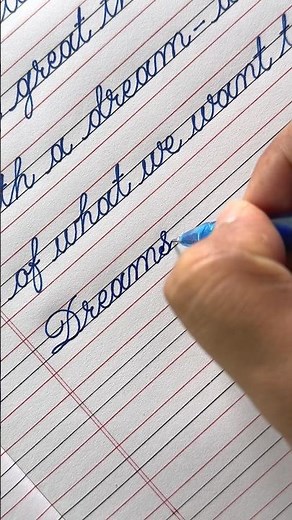 great
th a dream-
of what we want t
Dreams